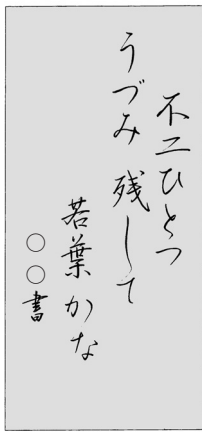 不二ひとつ
うづみ残して
若葉かな
○○書